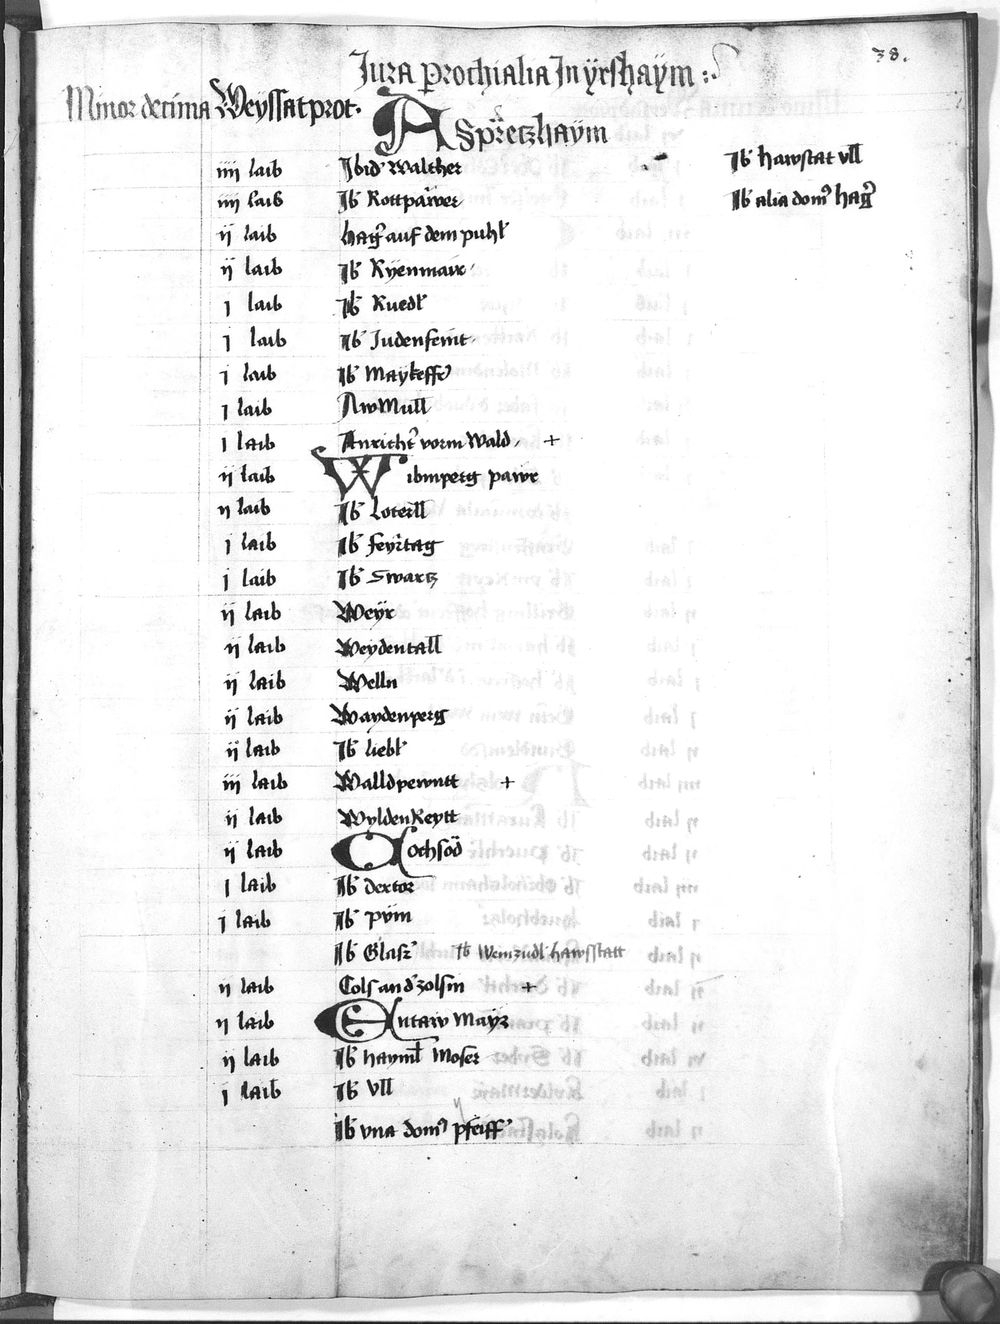 38.
Jura prochialia In ÿrshaÿm :
Minor decima Weÿssatprot.
Aspretzhaÿm
iiii laib Ibid Walther Ib hawstat Ull
iiii laib Ib Rottpawer Ib alia dom9 hag
ij laib hag auf dem puhl
ij laib Ib Rÿenmair
j laib Ib Ruedl
j laib Ib Judenfeint
j laib Ib Maÿkeff
j laib Aw Mull
j laib Anricht vorm Wald +
ij laib Wibmperg pawr
ij laib Ib Loterll
j laib Ib feÿrtag
j laib Ib Swartz
ij laib Weÿr
ij laib Weydentall
ij laib Welln
ij laib Waydenperg
ij laib Ib liebl
iij laib Walldpewntt +
ij laib Wyldenreytt
ij laib Cochsöd
j laib Ib dextor
j laib Ib pÿm
Ib Glasz Ib Weinzudl hawsstatt
ij laib +
ij laib Entaw Maÿr
ij laib Ib hayml Moser
j laib Ib Ull
Ib una dom9 pfeiff